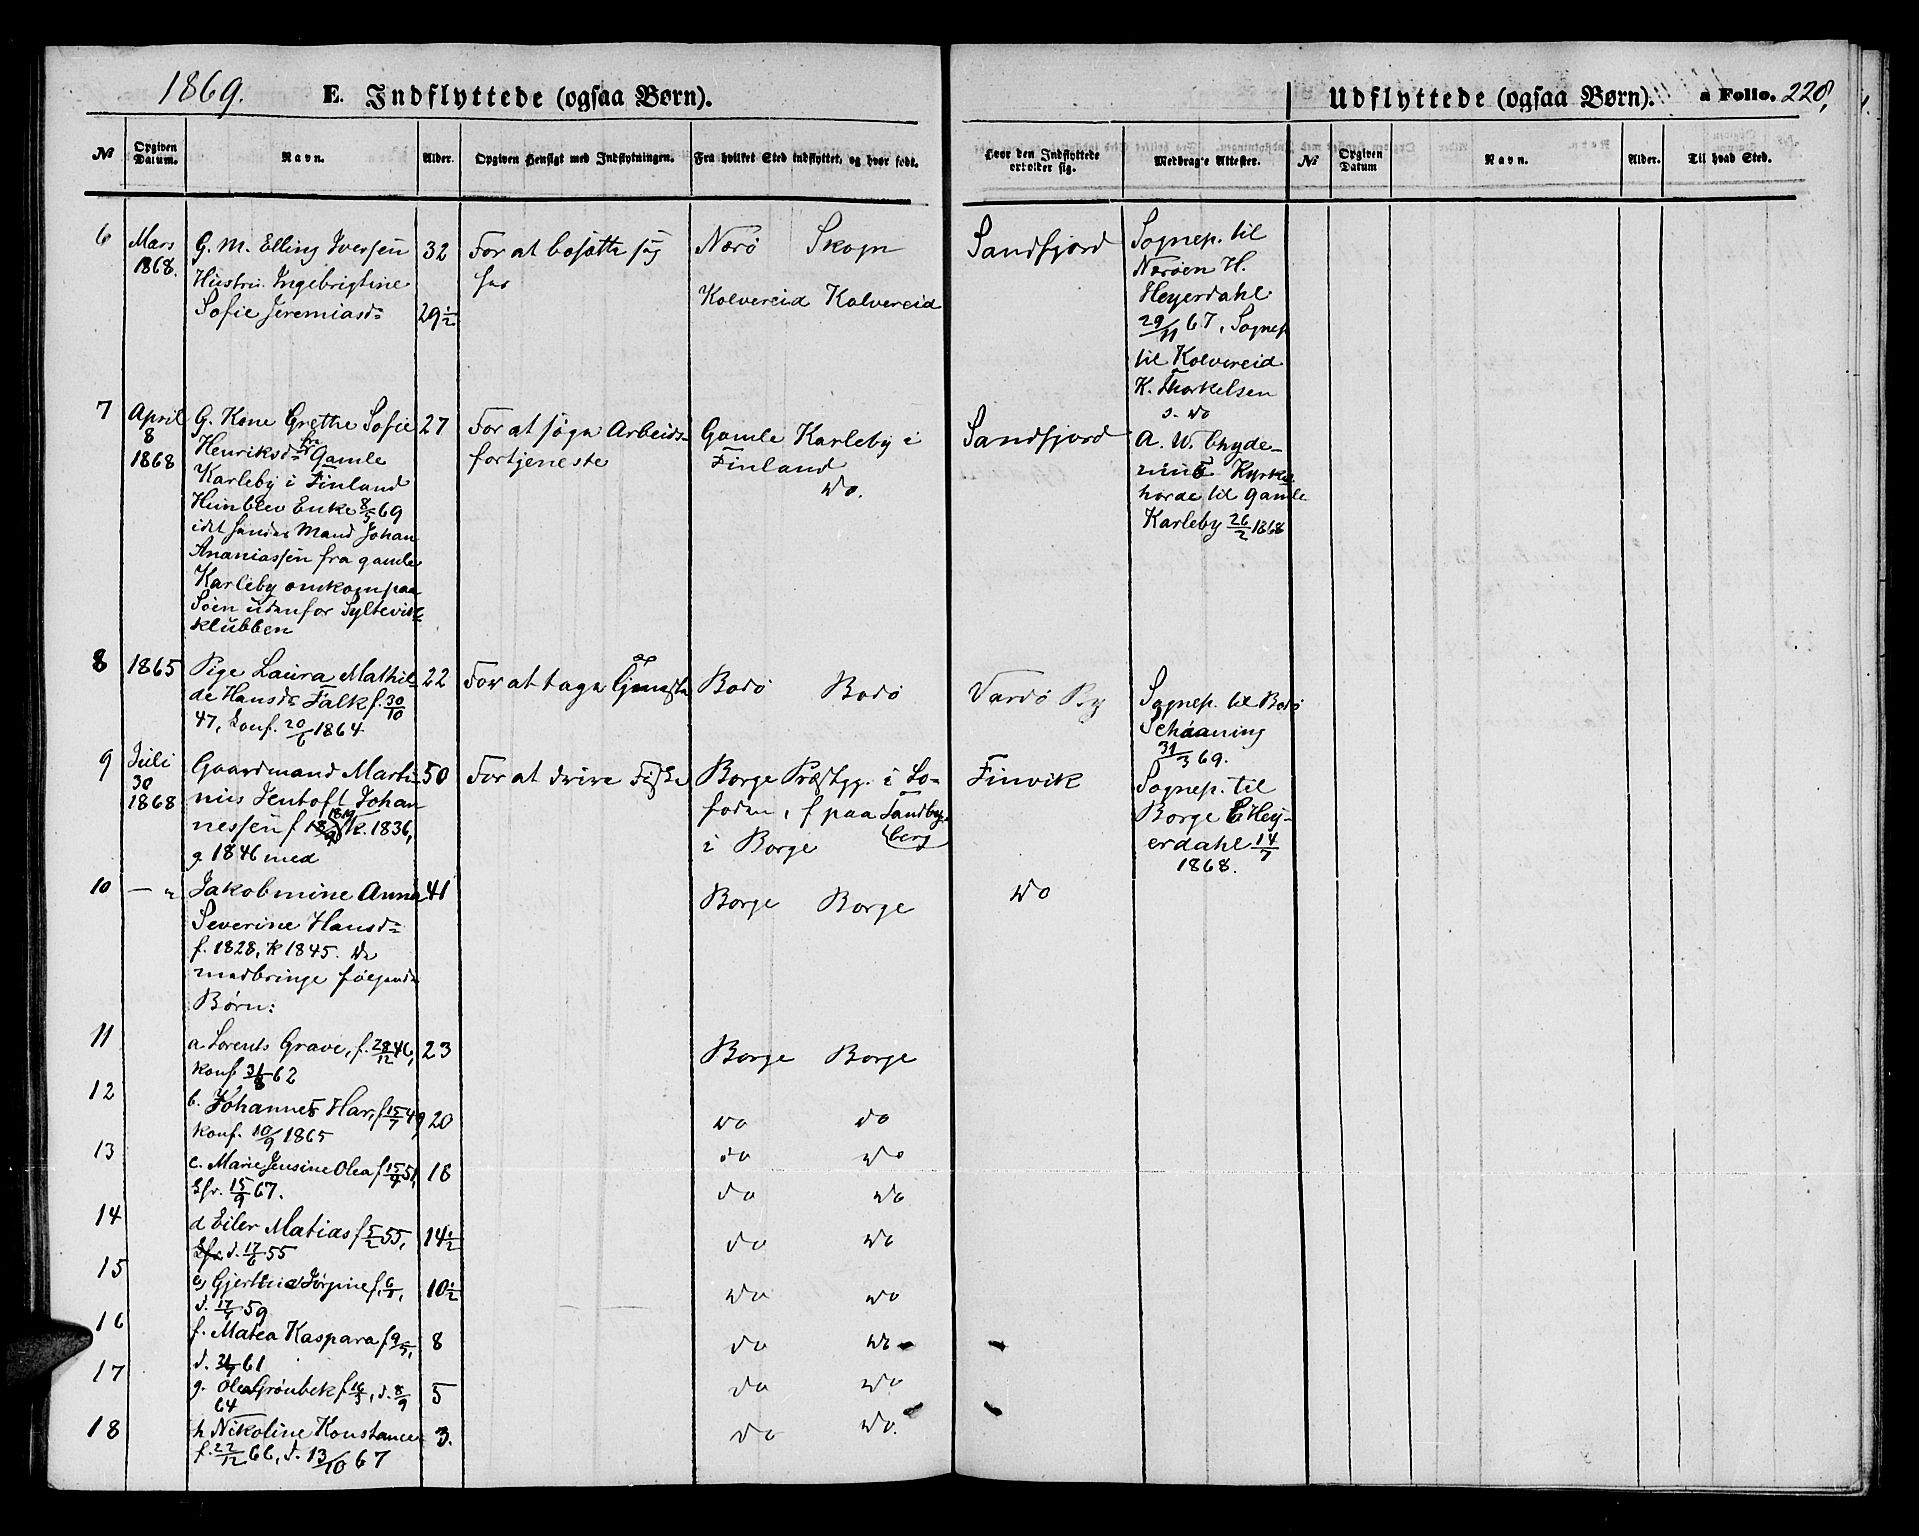 1869.
E. Indflyttede (ogsaa Børn).
Udflyttede (ogsaa Børn).
a Folio. 228,
№
Opgiven Datum.
Navn.
Alder.
Opgiven Hensigt med Indflytningen.
Fra hvilket Sted indflyttet, og hvor født.
Hvor den Indflyttede
opholder sig.
Medbragte Attester.
№
Opgiven Datum
Navn.
Alder.
Til hvad Sted.
6
Mars
1868.
G. M. Elling Iversen
Hustru Ingebrigtine
Sofie Jeremiasd=
32
29½
For at bosætte sig
her
Nærø Skogn
Kolvereid Kolvereid
Sandfjord
Sognep. til
Nærøen H.
Heyerdahl
29/11 67, Sognep
til Kolvereid
K. Thorkelsen
s. do
7
April
8
1868
G. Kone Grethe Sofie
Henriksd= fra Gamle
Karleby i Finland
Hun blev Enke 8/5 69
idet hendes Mand Johan
Ananiassen fra gamle
Karleby omkom paa
Søen udenfor Syltevik=
klubben
27
For at søge Arbeids=
fortjeneste
Gamle Karleby i
Finland
do.
Sandfjord
A. W. Chyde-
nius Kyrko
horde til Gamle
Karleby 26/2 1868
8
1865
Pige Laura Mathil=
de Hansd= Falk f. 30/10
47, Konf. 20/6 1864
22
For at tage Tjeneste
Bodø Bodø
Vardø By
Sognep. til Bodø
Schaaning
31/3 69.
9
Juli
30
1868
Gaardmand Marti
nus Jentoft Johan
nessen f k. 1836,
g. 1846 med
50
For at drive Fiske
Borge Præstgj. i Lo=
foden, f paa Sandby
berg
i Borge
Finvik
Sognep. til
Borge E Hey-
erdahl 14/7
1868.
10
— "
Jakobmine Anna
Severine Hansd=
f. 1828, K 1845. De
medbringe følgende
Børn:
41
Borge Borge
do
11
a Lorents Grave, f. 28/12 46,
Konf 31/8 62
23
Borge Borge
12
b. Johannes Har, f 15/7 49,
Konf. 10/9 1865
20
do do
13
c. Marie Jensine Olea f 15/9 51,
Kfr. 15/9 67.
18
do do
do do
14
d Eiler Matias f 5/2 55,
d. 17/6 55
14½
do do
15
e, Jørgine f. 6/
d. 17/ 59
10½
do do
16
f. Matea Kaspara f 9/5,
d. 61
8
do do
17
g. Olea Grønbek f 16/3, d. 8/9
64
5
do do
18
h Nikoline Konstance
f. 22/12 66, d. 13/10 67
3.
do do.